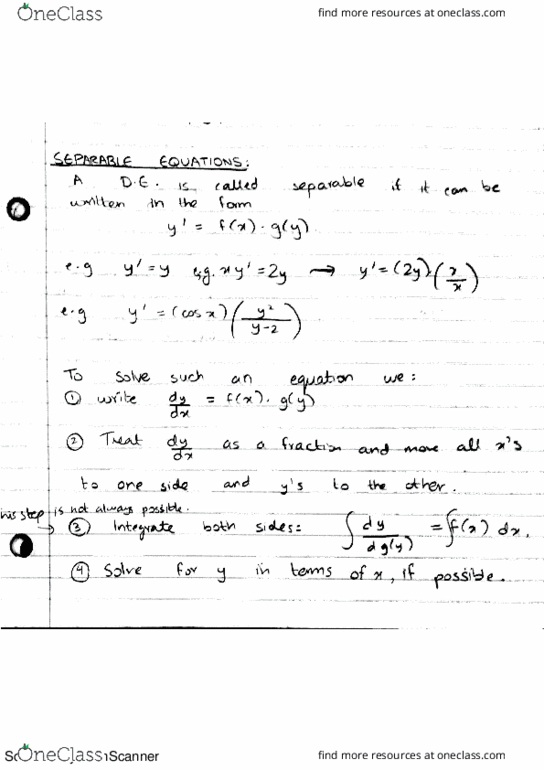 OneClass
find more resources at oneclass.com
SEPARABLE EQUATIONS:
A D.E. is called separable if it can be
written in the form
y' = f(x) · g(y)
e.g y' = y e.g. xy' = 2y → y' = (2y)·(1/x)
e.g y' = (cos x) (y²/y-2)
To solve such an equation we:
① write dy/dx = f(x) · g(y)
② Treat dy/dx as a fraction and move all x's
to one side and y's to the other.
his step is not always possible.
→ ③ Integrate both sides: ∫ dy/dg(y) = ∫f(x) dx.
④ Solve for y in terms of x, if possible.
OneClass
Scanner
find more resources at oneclass.com